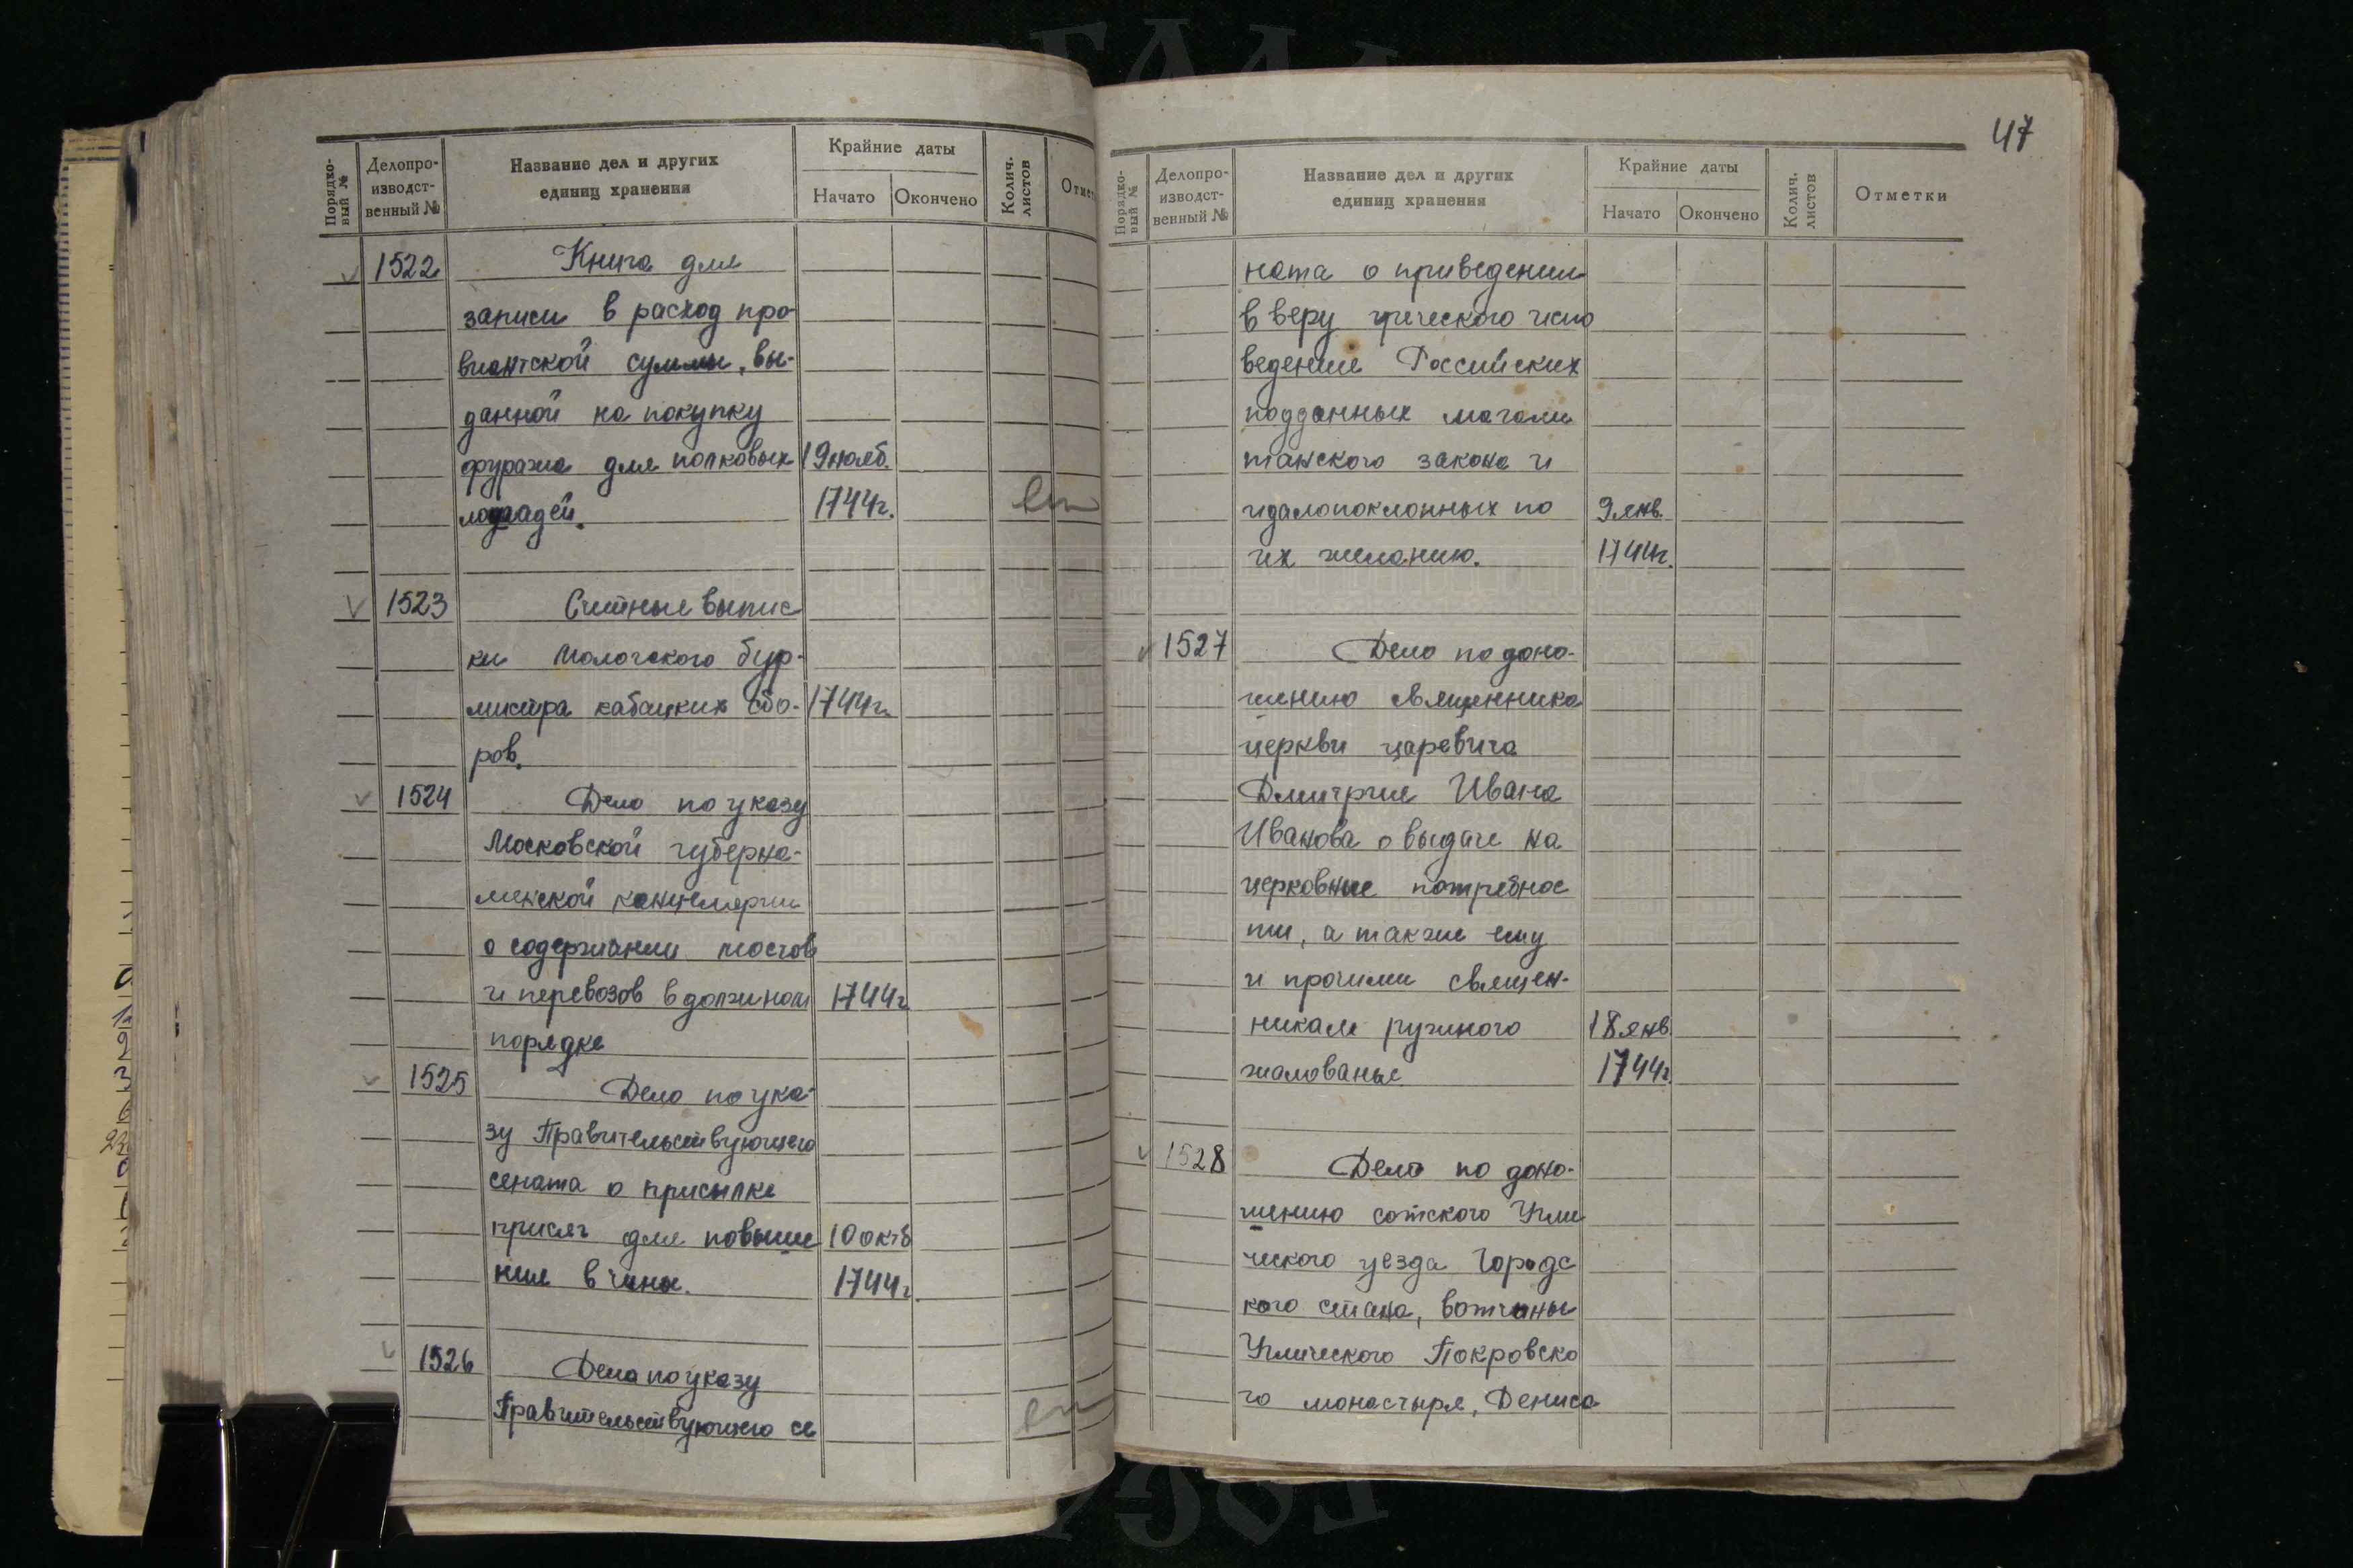 Порядко-
вый №
Делопро-
изводст-
венный №
Название дел и других
единиц хранения
Крайние даты
Начато
Окончено
Колич.
листов
Отмет
1522 Книга для
записи в расход про
виантской суммы, вы-
данной на покупку
фуража для полковых 19 нояб.
лошадей. 1744г.
1523 Счетные выпис
ки Мологского бур-
мистра кабацких сбо- 1744г.
ров.
1524 Дело по указу
Московской губерна-
менской канцелярии
о содержании мостов
и перевозов в должном 1744г
порядке
1525 Дело по ука-
зу Правительствующего
сената о присылке
присяг для повыше 10 октб
ния в чина. 1744г.
1526 Дело по указу
Правительствующего се
47
Порядко-
вый №
Делопро-
изводст-
венный №
Название дел и других
единиц хранения
Крайние даты
Начато
Окончено
Колич.
листов
Отметки
ната о приведении
в веру греческого испо
ведения Российских
подданных магоме
танского закона и
идалопоклонных по 9 янв.
их желанию. 1744г.
1527 Дело по доно-
шению священника
церкви царевича
Дмитрия Ивана
Иванова о выдаче на
церковные потребнос
ти, а также ему
и прочими священ-
никам ружного 18 янв
жалованья. 1744г.
1528 Дело по доно-
шению сотского Угли
ческого уезда Городс
кого стана, вотчины
Углического Покровско
го монастыря, Дениса